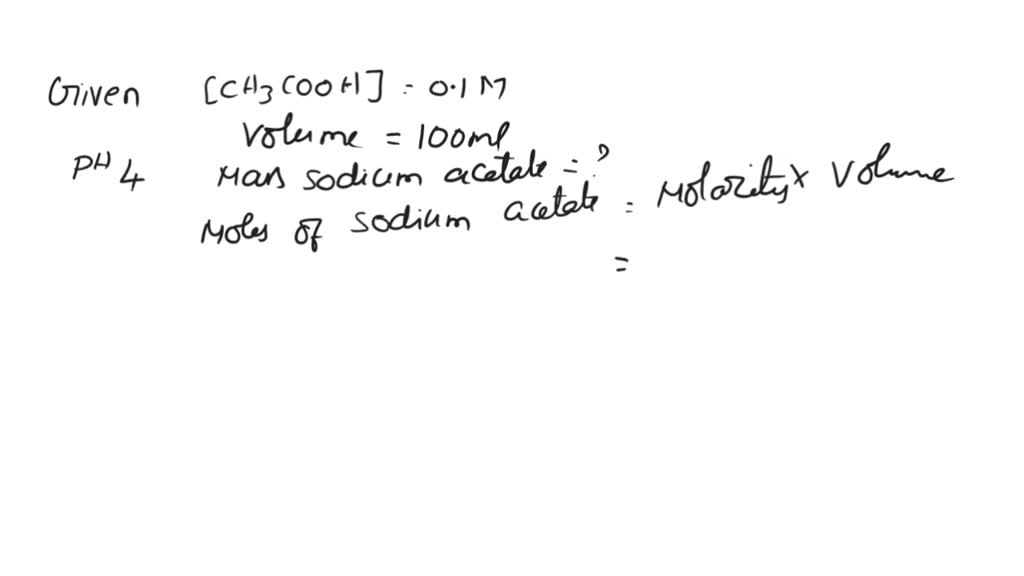 Given [CH3COOH] = 0.1 M
Volume = 100ml
PH 4 Mass sodium acetate = ?
Moles of sodium acetate = Molarity x Volume
=